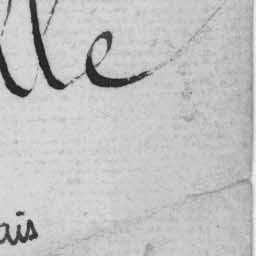 lle
ais